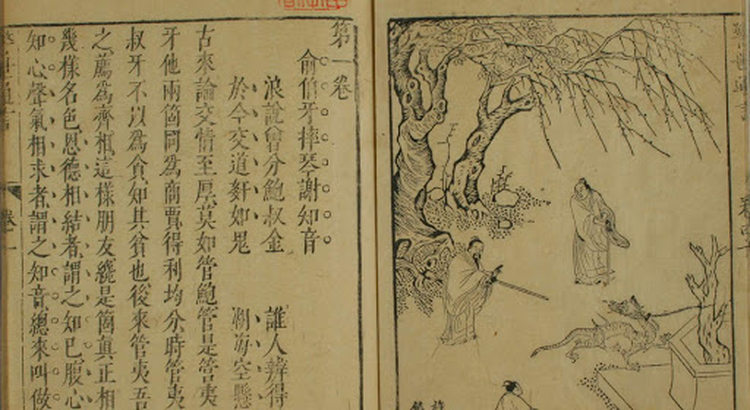 警世通言
第一卷
俞伯牙摔琴謝知音
浪說曾分鮑叔金 誰人辨得
於今交道奸如鬼 湖海空懸
古來論交情至厚莫如管鮑管是管夷
牙他兩箇同為商賈得利均分時管夷
叔牙不以為貪知其貧也後來管夷吾
之薦為齊相這樣朋友纔是箇真正相
幾樣名色恩德相結者謂之知己腹心
知心聲氣相求者謂之知音總來叫做
警世通言 卷一